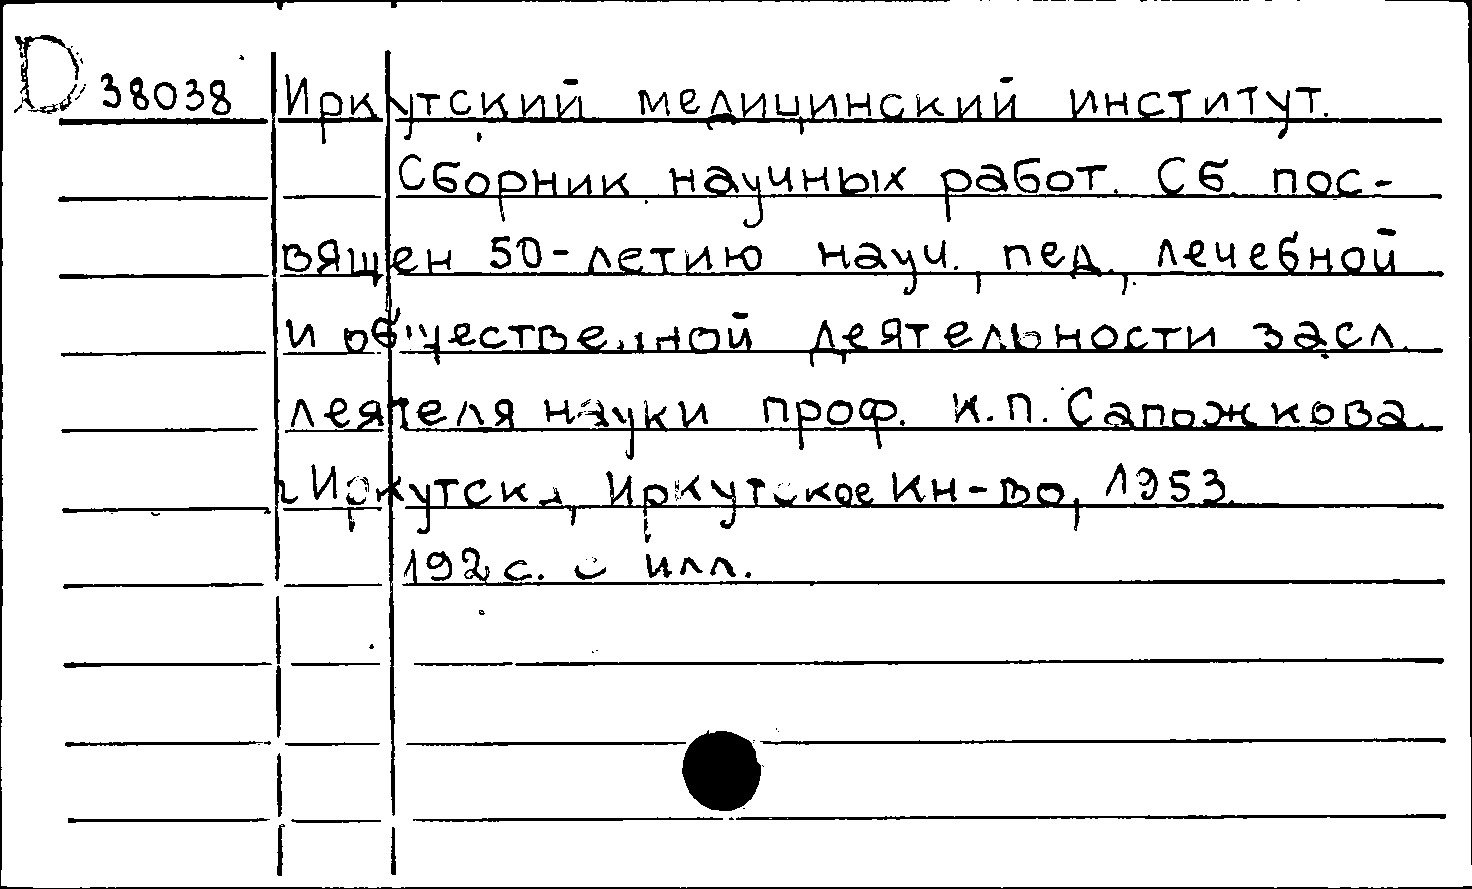 D 38038 Иркутский медицинский институт.
Сборник научных работ. Сб. пос-
вящен 50-летию науч., пед., лечебной
и общественной деятельности засл.
деятеля науки проф. К.П. Сапожкова.
г. Иркутск, Иркутское Кн-во, 1953.
192 с. с илл.